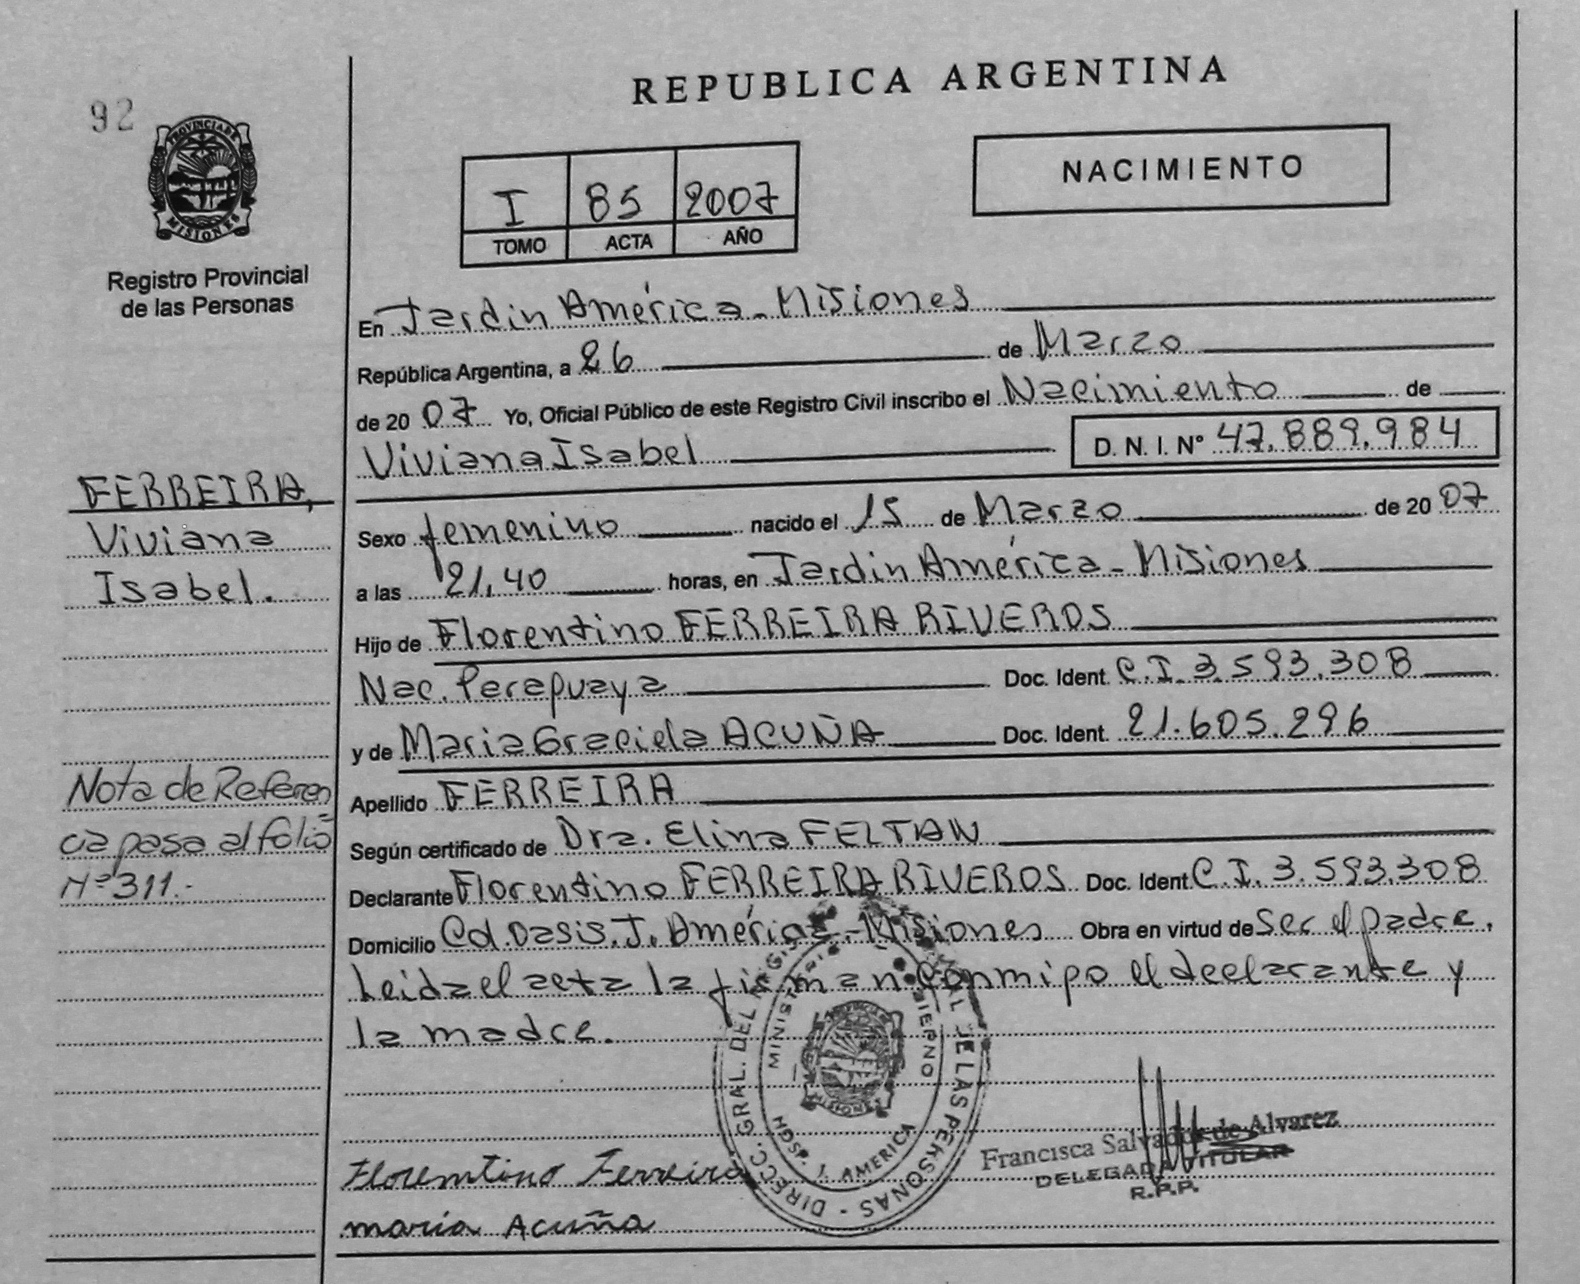 REPUBLICA ARGENTINA
92
PROVINCIA DE
MISIONES
Registro Provincial
de las Personas
NACIMIENTO
I 85 2007
TOMO ACTA AÑO
En Jardin América - Misiones
República Argentina, a 26 de Marzo
de 2007 Yo, Oficial Público de este Registro Civil inscribo el Nacimiento de
Viviana Isabel D. N. I. Nº 47.889.984
FERREIRA,
Viviana
Isabel.
Sexo femenino nacido el 15 de Marzo de 2007
a las 21,40 horas, en Jardin América - Misiones
Hijo de Florentino FERREIRA RIVEROS
Nac. Paraguaya Doc. Ident. C.I. 3.593.308
y de Maria Graciela ACUÑA Doc. Ident. 21.605.296
Apellido FERREIRA
Según certificado de Dra. Elina FELTAN
Declarante Florentino FERREIRA RIVEROS Doc. Ident. C.I. 3.593.308
Domicilio Col. Oasis. J. América - Misiones Obra en virtud de Ser el padre.
Leida el acta la firman conmigo el declarante y
la madre.
Nota de Referen
cia pasa al folio
Nº 311.-
DIRECC. GRAL. DEL DE LAS PERSONAS
MINISTERIO GOBIERNO
MISIONES
HOSP. J. AMERICA
Florentino Ferreira
maria Acuña
Francisca Salvador de Alvarez
DELEGADA TITULAR
R.P.P.